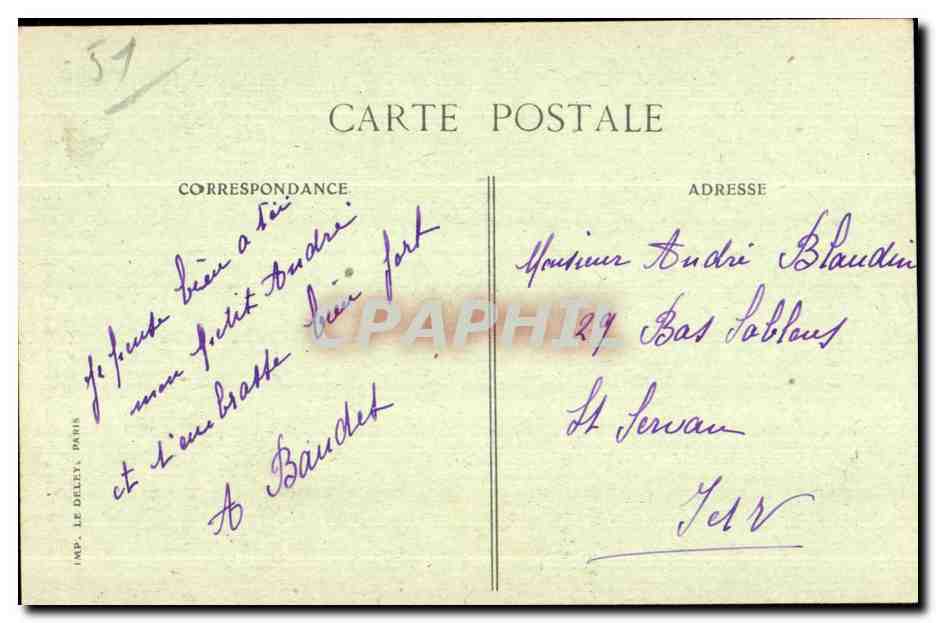 51
CARTE POSTALE
CORRESPONDANCE
Je pense bien a toi
mon petit André
et t'embrasse bien fort
A Baudet
IMP. LE DELEY, PARIS
ADRESSE
Monsieur André Blaudin
29 Bas Sablons
St Servan
I et V
CPAPHIL